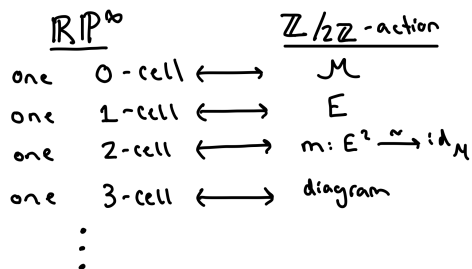 ℝℙ^∞ ℤ/2ℤ-action
one 0-cell ⟷ M
one 1-cell ⟷ E
one 2-cell ⟷ m: E² ⥲ id_M
one 3-cell ⟷ diagram
⋮